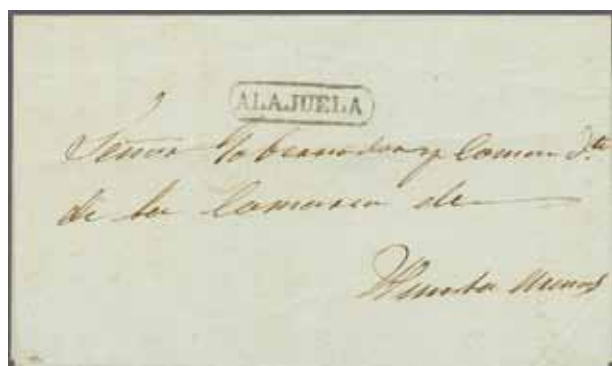 ALAJUELA
Señor Gobernador y Comand.te
de la Comarca de
Punta Arenas